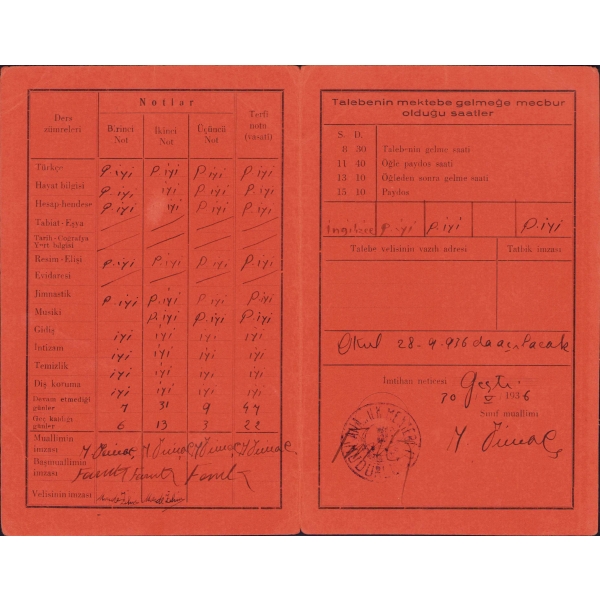 Ders zümreleri
Notlar
Birinci Not
İkinci Not
Üçüncü Not
Terfi notu (vasati)
Türkçe P. iyi P. iyi P. iyi P. iyi
Hayat bilgisi P. iyi P. iyi P. iyi P. iyi
Hesap-hendese P. iyi iyi P. iyi P. iyi
Tabiat-Eşya
Tarih-Coğrafya
Yurt bilgisi
Resim-Elişi P. iyi P. iyi P. iyi P. iyi
Evidaresi
Jimnastik P. iyi P. iyi P. iyi P. iyi
Musiki P. iyi P. iyi P. iyi
Gidiş iyi iyi iyi iyi
İntizam iyi iyi iyi iyi
Temizlik iyi iyi iyi iyi
Diş koruma iyi iyi iyi iyi
Devam etmediği günler 7 31 9 47
Geç kaldığı günler 6 13 3 22
Muallimin imzası
Başmuallimin imzası
Velisinin imzası
Talebenin mektebe gelmeğe mecbur
olduğu saatler
S. D.
8 30 Talebenin gelme saati
11 40 Öğle paydos saati
13 10 Öğleden sonra gelme saati
15 10 Paydos
ingilizce P. iyi P. iyi P. iyi
Talebe velisinin yazılı adresi
Tatbik imzası
Okul 28-9-936 da açılacak
İmtihan neticesi Geçti
30 VI 1936
Sınıf muallimi